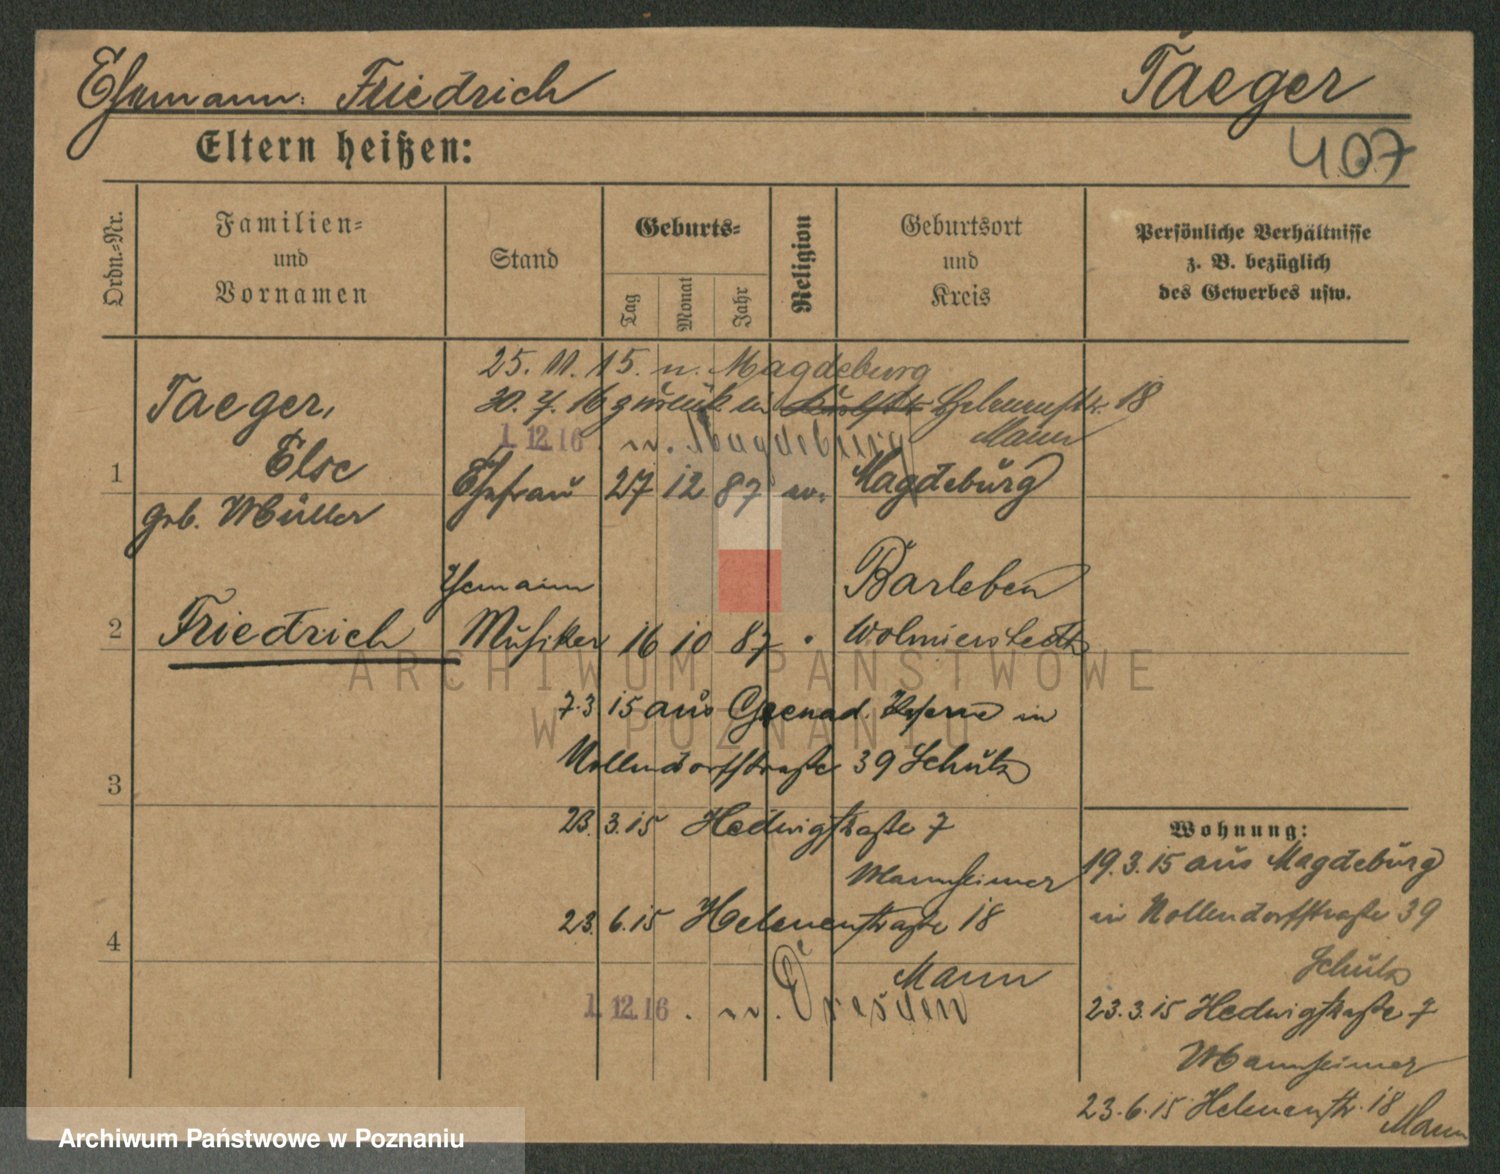 Ehemann: Friedrich Taeger
Eltern heißen: 407
Ordn.-Nr.
Familien-
und
Vornamen
Stand
Geburts-
Tag
Monat
Jahr
Religion
Geburtsort
und
Kreis
Persönliche Verhältnisse
z. B. bezüglich
des Gewerbes usw.
25. 11. 15. n. Magdeburg
30. 7. 16 zurück in Helenenstr. 18
Mann
1. 12. 16 . n. Magdeburg
Taeger,
Else
1
geb. Müller
Ehefrau 27 12 87 ev. Magdeburg
Ehemann
2 Friedrich Musiker 16 10 87 " Barleben
Wolmirstedt
7.3 15 aus Grenad. Kaserne in
Nollendorfstraße 39 Schulz
3
23. 3. 15 Hedwigstraße 7
Mannheimer
23. 6. 15 Helenenstraße 18
4
Mann
1. 12. 16 . n. Dresden
Wohnung:
19. 3. 15 aus Magdeburg
in Nollendorfstraße 39
Schulz
23. 3. 15 Hedwigstraße 7
Mannheimer
23. 6. 15 Helenenstr. 18
Mann
ARCHIWUM PAŃSTWOWE
W POZNANIU
Archiwum Państwowe w Poznaniu